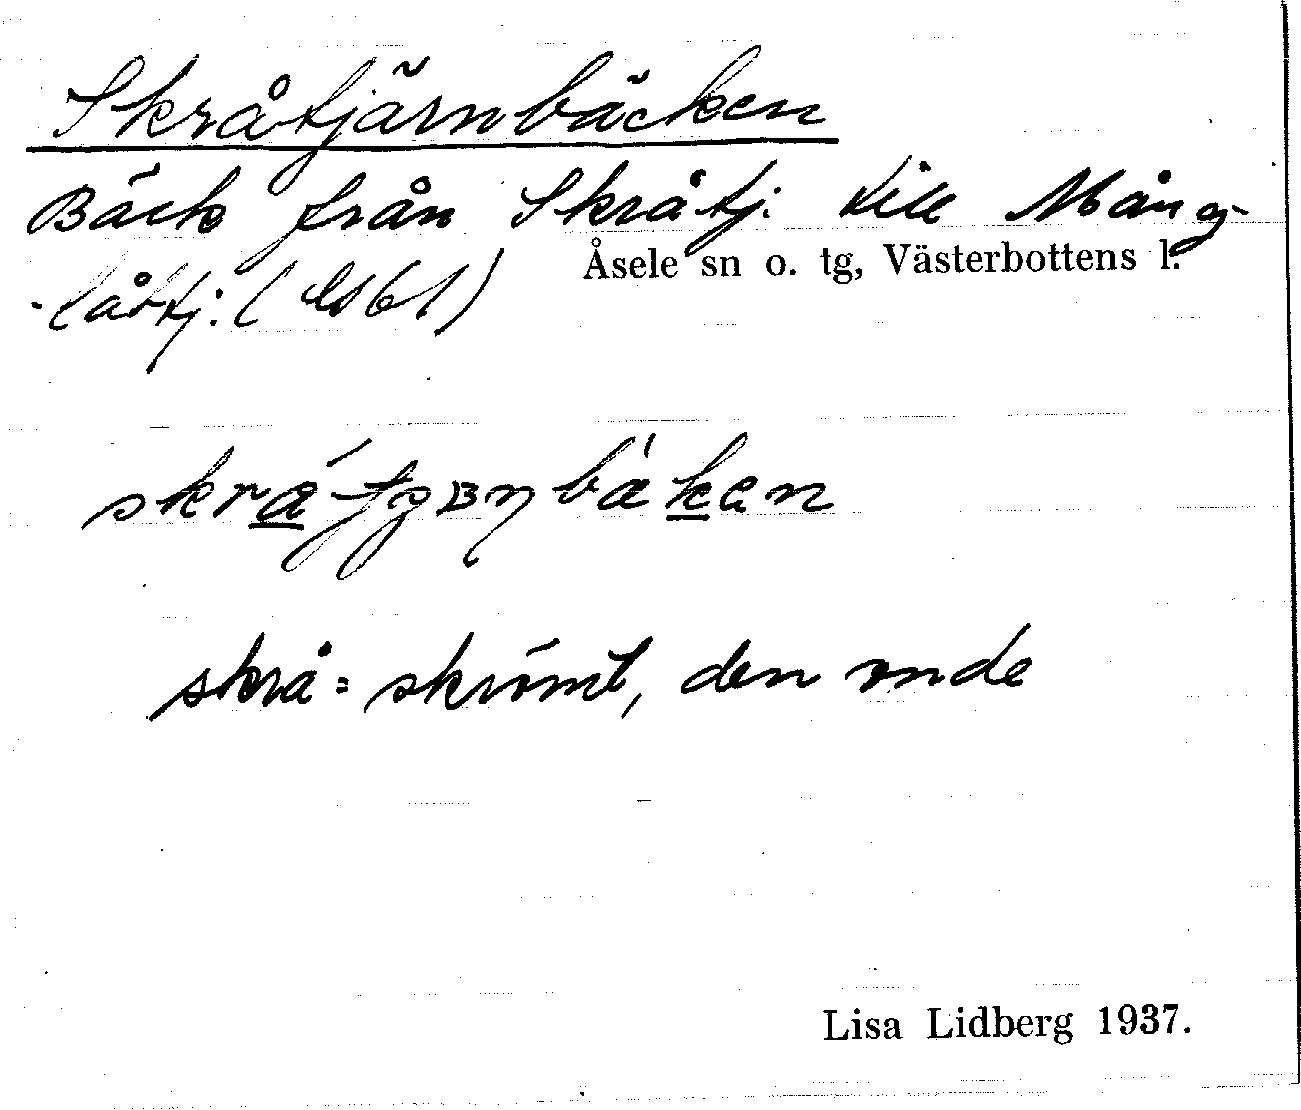 Skråtjärnbäcken
Bäck från Skråtj. till Mång-
Åsele sn o. tg, Västerbottens l.
-låttj:
skrå = skrömt, den onde
Lisa Lidberg 1937.